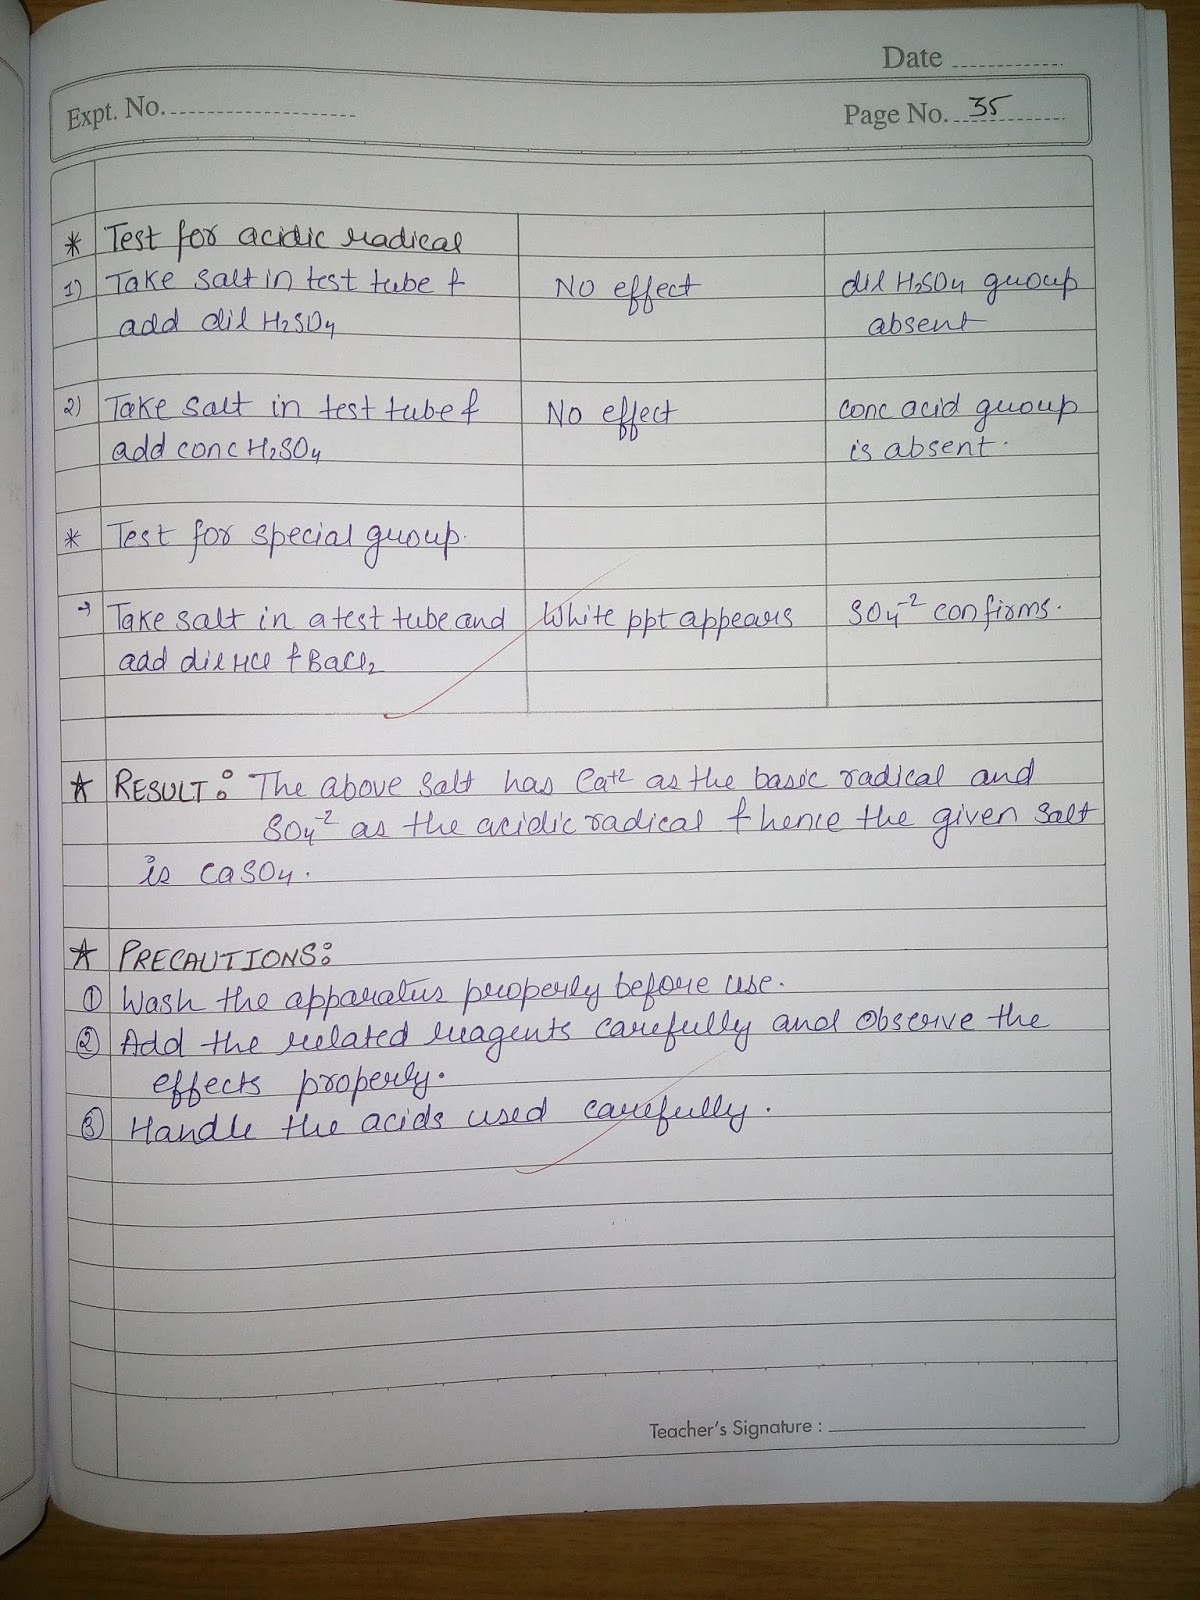 Date
Expt. No.
Page No. 35
* Test for acidic radical
1) Take salt in test tube & No effect dil H₂SO₄ group
add dil H₂SO₄ absent
2) Take salt in test tube & No effect conc acid group
add conc H₂SO₄ is absent.
* Test for special group.
→ Take salt in a test tube and White ppt appears SO₄⁻² confirms.
add dil HCl & BaCl₂
☆ RESULT: The above salt has Ca⁺² as the basic radical and
SO₄⁻² as the acidic radical & hence the given salt
is CaSO₄.
☆ PRECAUTIONS:
① Wash the apparatus properly before use.
② Add the related reagents carefully and observe the
effects properly.
③ Handle the acids used carefully.
Teacher's Signature :